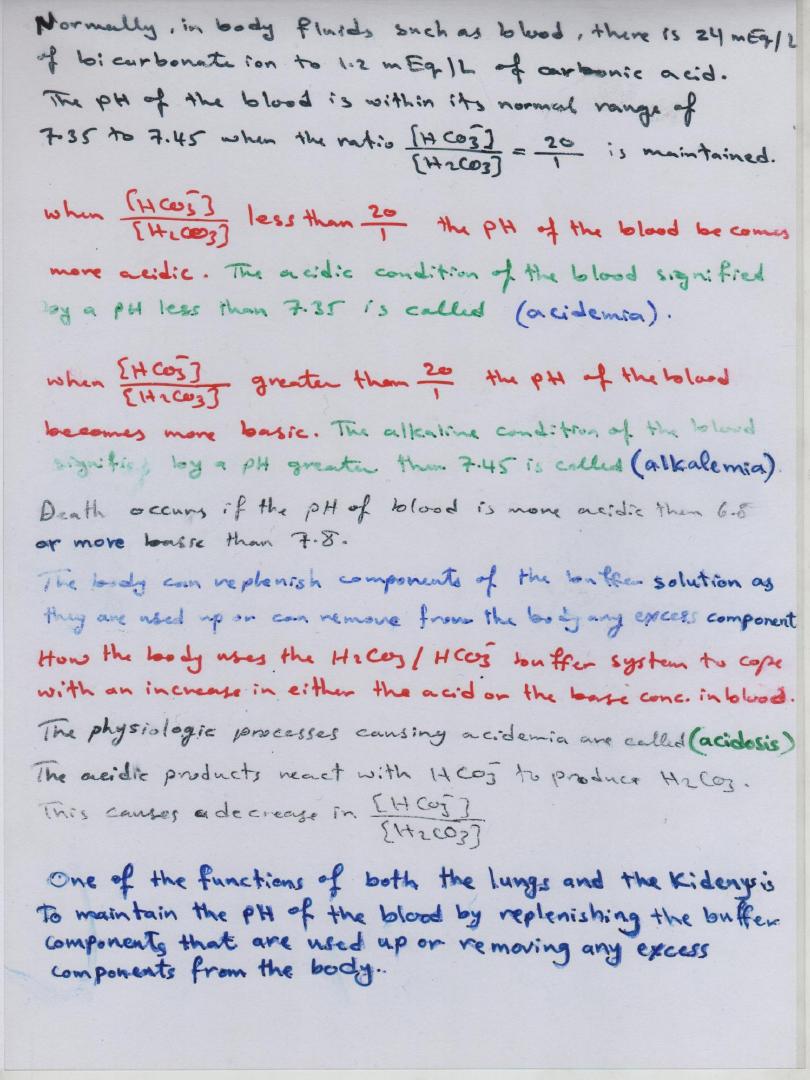 Normally, in body fluids such as blood, there is 24 mEq/L
of bicarbonate ion to 1.2 mEq/L of carbonic acid.
The pH of the blood is within its normal range of
7.35 to 7.45 when the ratio [HCO3⁻]/[H2CO3] = 20/1 is maintained.
when [HCO3⁻]/[H2CO3] less than 20/1 the pH of the blood becomes
more acidic. The acidic condition of the blood signified
by a pH less than 7.35 is called (acidemia).
when [HCO3⁻]/[H2CO3] greater than 20/1 the pH of the blood
becomes more basic. The alkaline condition of the blood
signified by a pH greater than 7.45 is called (alkalemia).
Death occurs if the pH of blood is more acidic then 6.8
or more basic than 7.8.
The body can replenish components of the buffer solution as
they are used up or can remove from the body any excess component
How the body uses the H2CO3/HCO3⁻ buffer system to cope
with an increase in either the acid or the base conc. in blood.
The physiologic processes causing acidemia are called (acidosis)
The acidic products react with HCO3⁻ to produce H2CO3.
This causes a decrease in [HCO3⁻]/[H2CO3]
One of the functions of both the lungs and the Kidenys is
To maintain the pH of the blood by replenishing the buffer
components that are used up or removing any excess
components from the body..